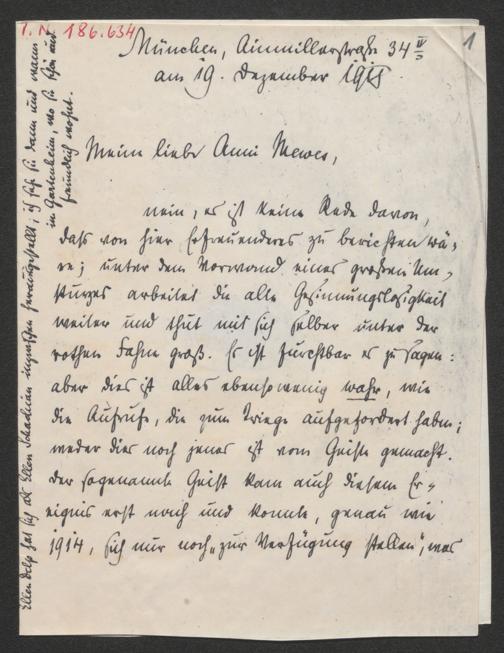 I. N. 186.634
1
München, Ainmillerstraße 34 IV
am 19. Dezember 1918
Meine liebe Anni Mewes,
nein, es ist keine Rede davon,
daß von hier Erfreuenderes zu berichten wä-
re; unter dem Vorwand eines großen Um-
sturzes arbeitet die alte Gesinnungslosigkeit
weiter und thut mit sich selber unter der
rothen Fahne groß. Es ist furchtbar es zu sagen:
aber dies ist alles ebensowenig wahr, wie
die Aufrufe, die zum Kriege aufgefordert haben;
weder dies noch jenes ist vom Geiste gemacht.
Der sogenannte Geist kam auch diesem Er-
eignis erst nach und konnte, genau wie
1914, sich nur noch „zur Verfügung stellen", was
Ellen Delp hat sich als Ellen inzwischen herausgestellt; ich sehe sie dann und wann
in Gartenheim, wo sie schön und
freundlich wohnt.